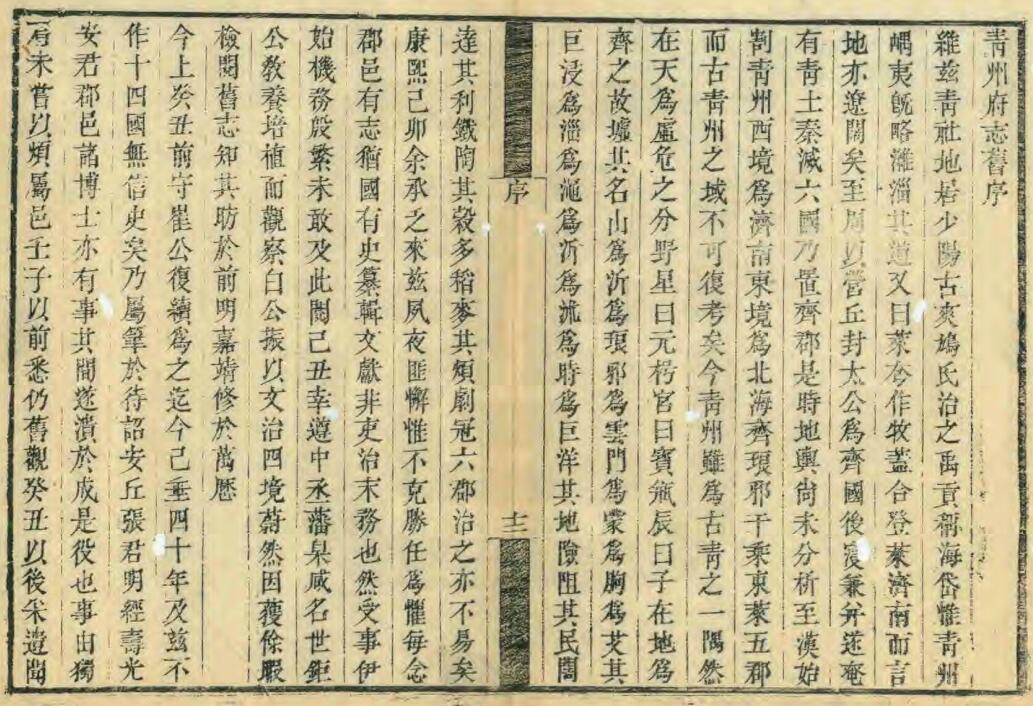 青州府志舊序
維茲青社地居少陽古爽鳩氏治之禹貢稱海岱惟青州
嵎夷旣略濰淄其道又曰萊夷作牧蓋合登萊濟南而言
地亦遼闊矣至周以營丘封太公爲齊國後寖兼弁遂奄
有青土秦滅六國乃置齊郡是時地輿尙未分析至漢始
割青州西境爲濟南東境爲北海齊琅邪千乘東萊五郡
而古青州之域不可復考矣今青州雖爲古青之一隅然
在天爲虛危之分野星曰元枵宮曰寶瓶辰曰子在地爲
齊之故墟其名山爲沂爲琅邪爲雲門爲蒙爲朐爲艾其
巨浸爲淄爲澠爲沂爲沭爲時爲巨洋其地險阻其民闊
序
十三
達其利鐵陶其穀多稻麥其煩劇冠六郡治之亦不易矣
康熙己卯余承乏來茲夙夜匪懈惟不克勝任爲懼每念
郡邑有志猶國有史纂輯文獻非吏治末務也然受事伊
始機務殷繁未敢及此閱己丑幸遵中丞藩臬咸名世鉅
公敎養培植而觀察白公振以文治四境蔚然因獲餘暇
檢閱舊志知其昉於前明嘉靖修於萬曆
今上癸丑前守崔公復續爲之迄今己垂四十年及茲不
作十四國無信史矣乃屬筆於待詔安丘張君明經壽光
安君郡邑諸博士亦有事其間遂潰於成是役也事由獨
肩未嘗以煩屬邑壬子以前悉仍舊觀癸丑以後采遺聞